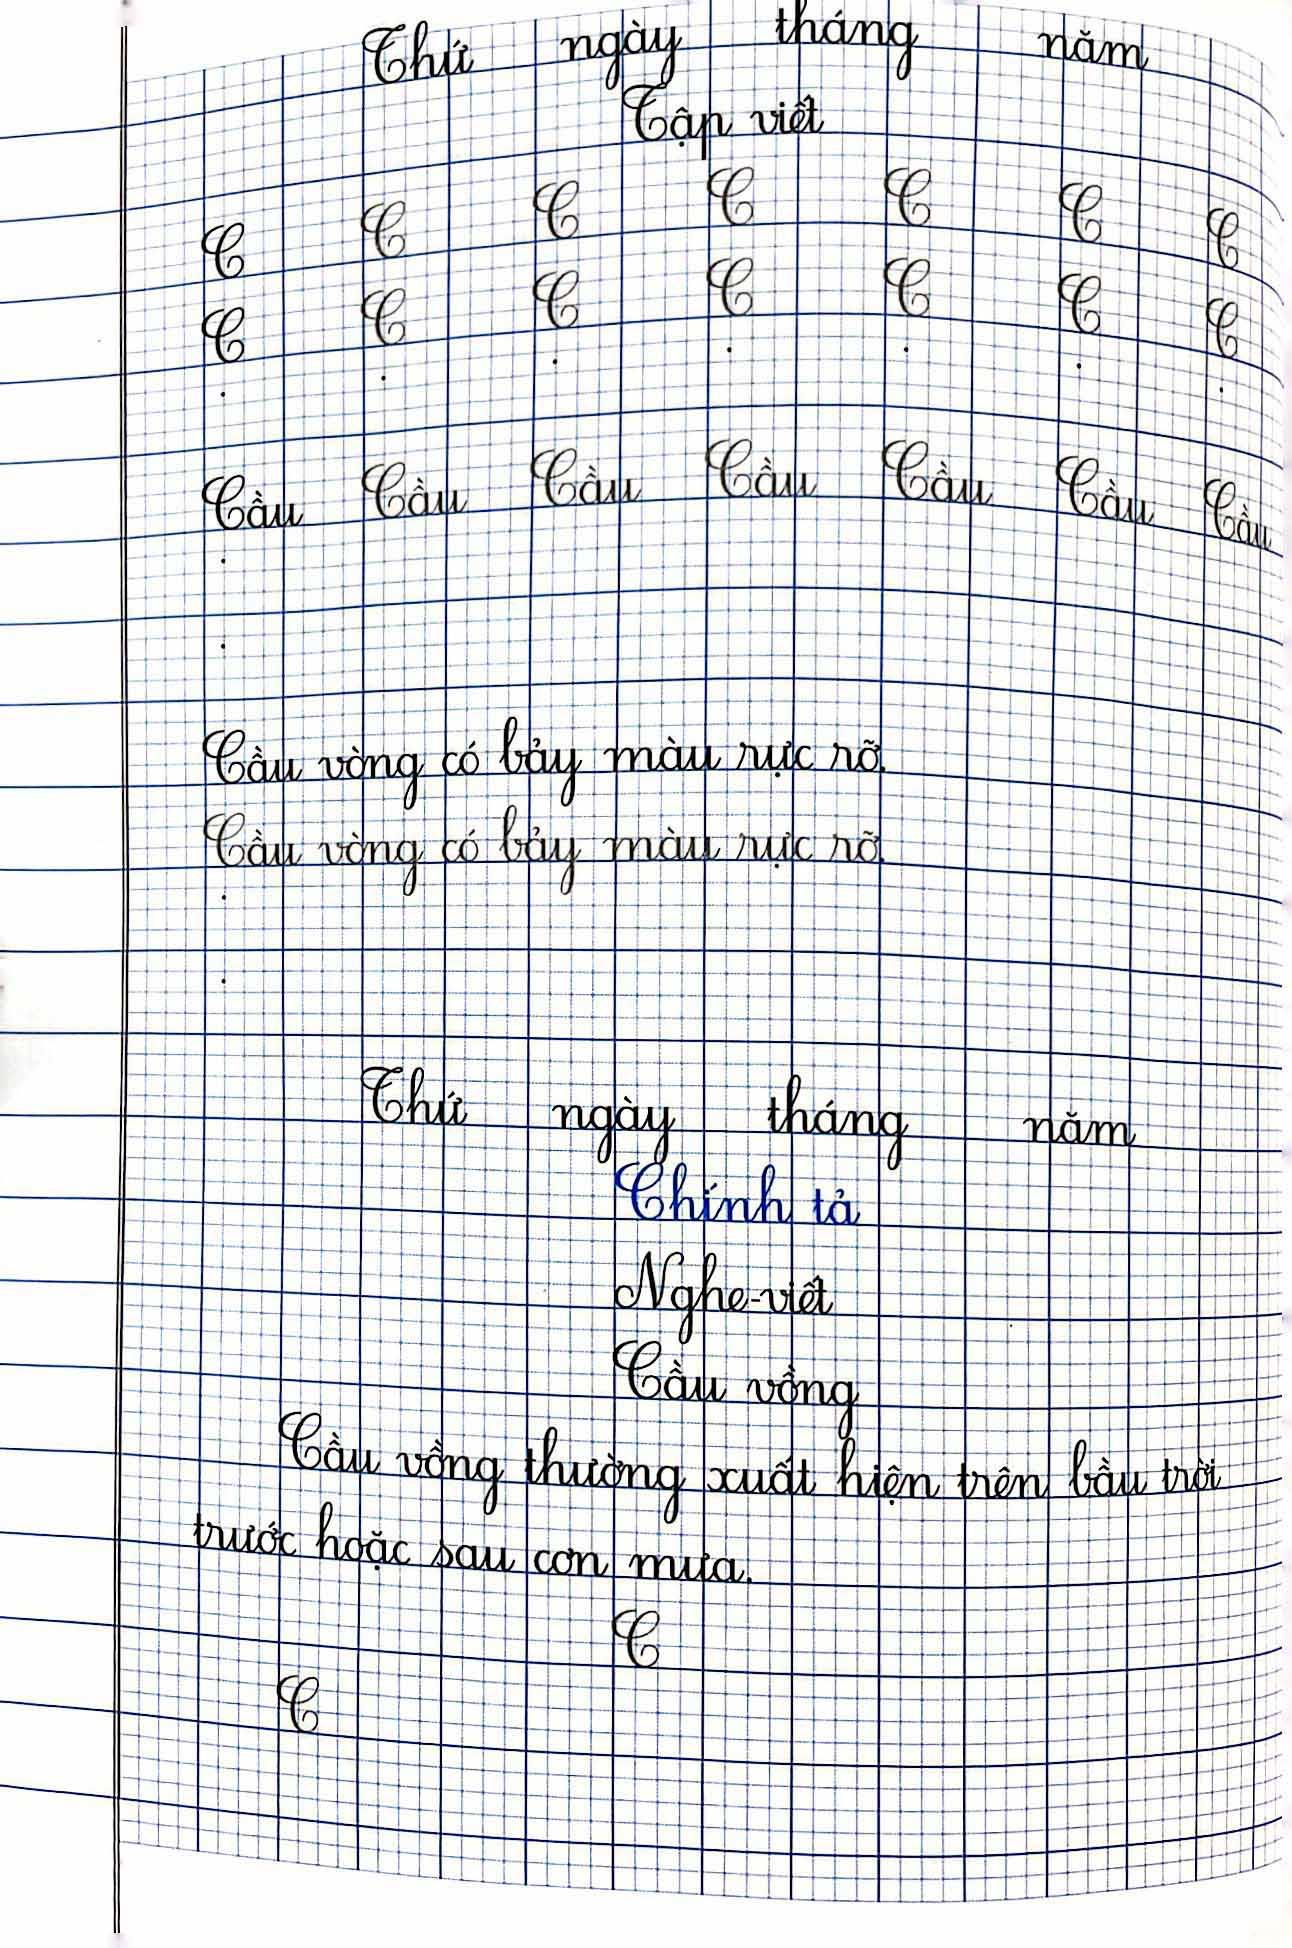 Thứ ngày tháng năm
Tập viết
C C C C C C C
C C C C C C C
. . . . . . .
Cầu Cầu Cầu Cầu Cầu Cầu Cầu
.
.
Cầu vòng có bảy màu rực rỡ.
Cầu vòng có bảy màu rực rỡ.
.
.
Thứ ngày tháng năm
Chính tả
Nghe-viết
Cầu vồng
Cầu vồng thường xuất hiện trên bầu trời
trước hoặc sau cơn mưa.
C
C